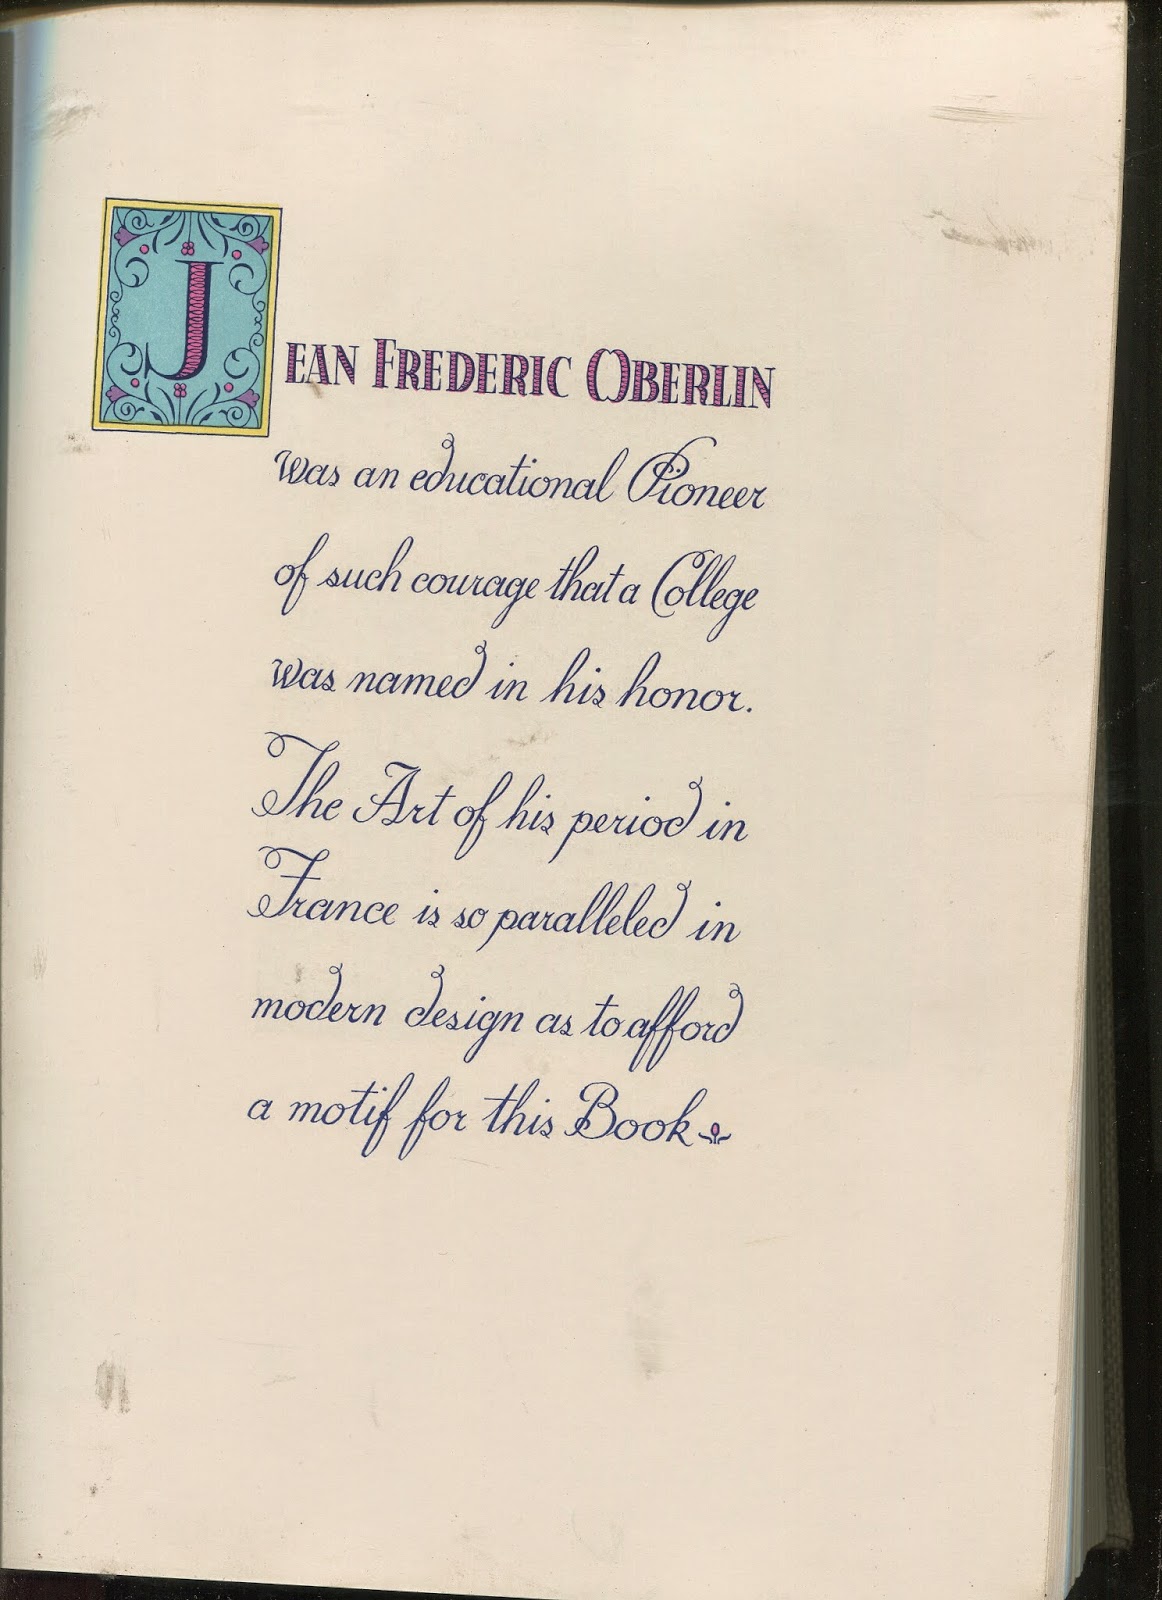 JEAN FREDERIC OBERLIN
was an educational Pioneer
of such courage that a College
was named in his honor.
The Art of his period in
France is so paralleled in
modern design as to afford
a motif for this Book